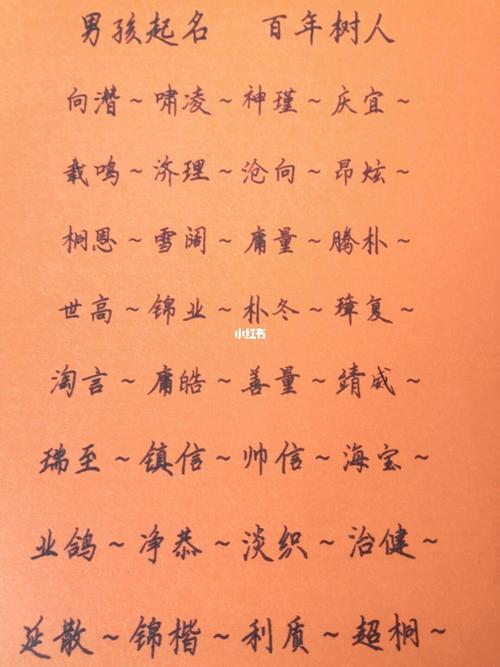 男孩起名 百年树人
向潜~啸凌~神瑾~庆宜~
载鸣~济理~沧向~昂炫~
桐恩~雪阔~庸量~腾朴~
世高~锦业~朴冬~璋复~
小红书
淘言~庸皓~善量~靖威~
瑞至~镇信~帅信~海宝~
业鸽~净恭~淡织~治健~
延散~锦楷~利质~超桐~